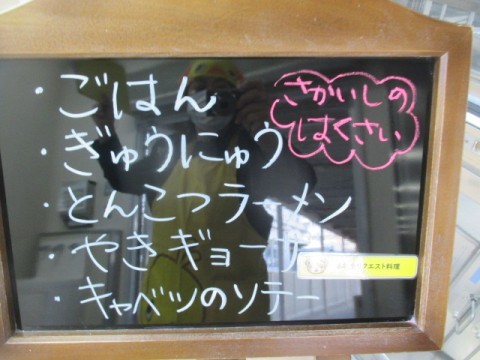 ・ごはん
・ぎゅうにゅう
・とんこつラーメン
・やきギョーザ
・キャベツのソテー
さかいしの
はくさい
クエスト料理